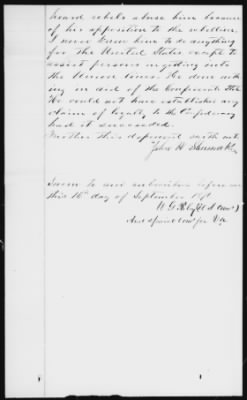 heard rebels abuse him because
of his opposition to the rebellion.
I never knew him to do anything
for the United States except to
assist persons in getting into
the Union lines. He done noth
ing in aid of the Confederate States
He could not have established any
claim of loyalty to the Confederacy
had it succeeded.
Further this deponent saith not
John H
Sworn to and subscribed before me
this 16th day of September 187
W. G. Riley U.S. Com
And special Com for Va